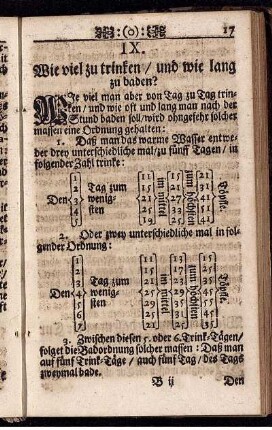 :(o): 17
IX.
Wie viel zu trinken / und wie lang
zu baden?
WIe viel man aber von Tag zu Tag trin-
ken / und wie oft und lang man nach der
Stund baden soll / wird ohngesehr solcher
massen eine Ordnung gehalten:
1. Daß man das warme Wasser entwe-
der drey unterschiedliche mal / zu fünff Tagen / in
folgender Zahl trinke:
1 11 15 21
2 Tag zum 15 21 31
Den 3 wenig- 21 im mittel 27 zum höchsten 41
4 sten
5
2. Oder zwey unterschiedliche mal in fol-
gender Ordnung:
1 11
2 15
3 Tag zum 21
Den 4 wenig- im mittel zum höchsten
5 sten
6
7
3. Zwischen diesen 5. oder 6. Trink-Tägen /
folget die Badordnung solcher massen: Daß man
auf fünf Trink-Täge / auch fünf Tag / des Tags
zweymal bade.
B ij Den